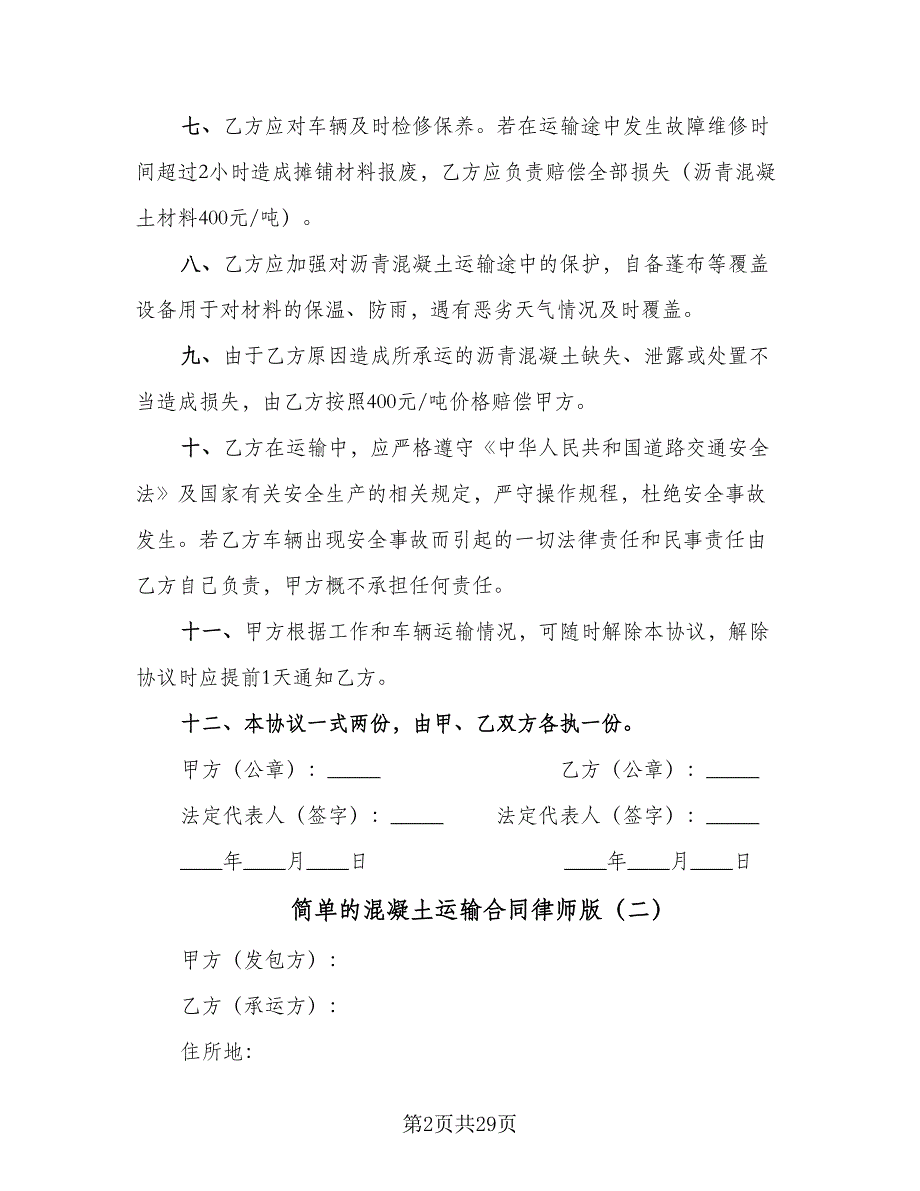 七、乙方应对车辆及时检修保养。若在运输途中发生故障维修时
间超过2小时造成摊铺材料报废，乙方应负责赔偿全部损失（沥青混凝
土材料400元/吨）。
八、乙方应加强对沥青混凝土运输途中的保护，自备蓬布等覆盖
设备用于对材料的保温、防雨，遇有恶劣天气情况及时覆盖。
九、由于乙方原因造成所承运的沥青混凝土缺失、泄露或处置不
当造成损失，由乙方按照400元/吨价格赔偿甲方。
十、乙方在运输中，应严格遵守《中华人民共和国道路交通安全
法》及国家有关安全生产的相关规定，严守操作规程，杜绝安全事故
发生。若乙方车辆出现安全事故而引起的一切法律责任和民事责任由
乙方自己负责，甲方概不承担任何责任。
十一、甲方根据工作和车辆运输情况，可随时解除本协议，解除
协议时应提前1天通知乙方。
十二、本协议一式两份，由甲、乙双方各执一份。
甲方（公章）：_____ 乙方（公章）：_____
法定代表人（签字）：_____ 法定代表人（签字）：_____
____年____月____日 ____年____月____日
简单的混凝土运输合同律师版（二）
甲方（发包方）：
乙方（承运方）：
住所地：
第2页共29页